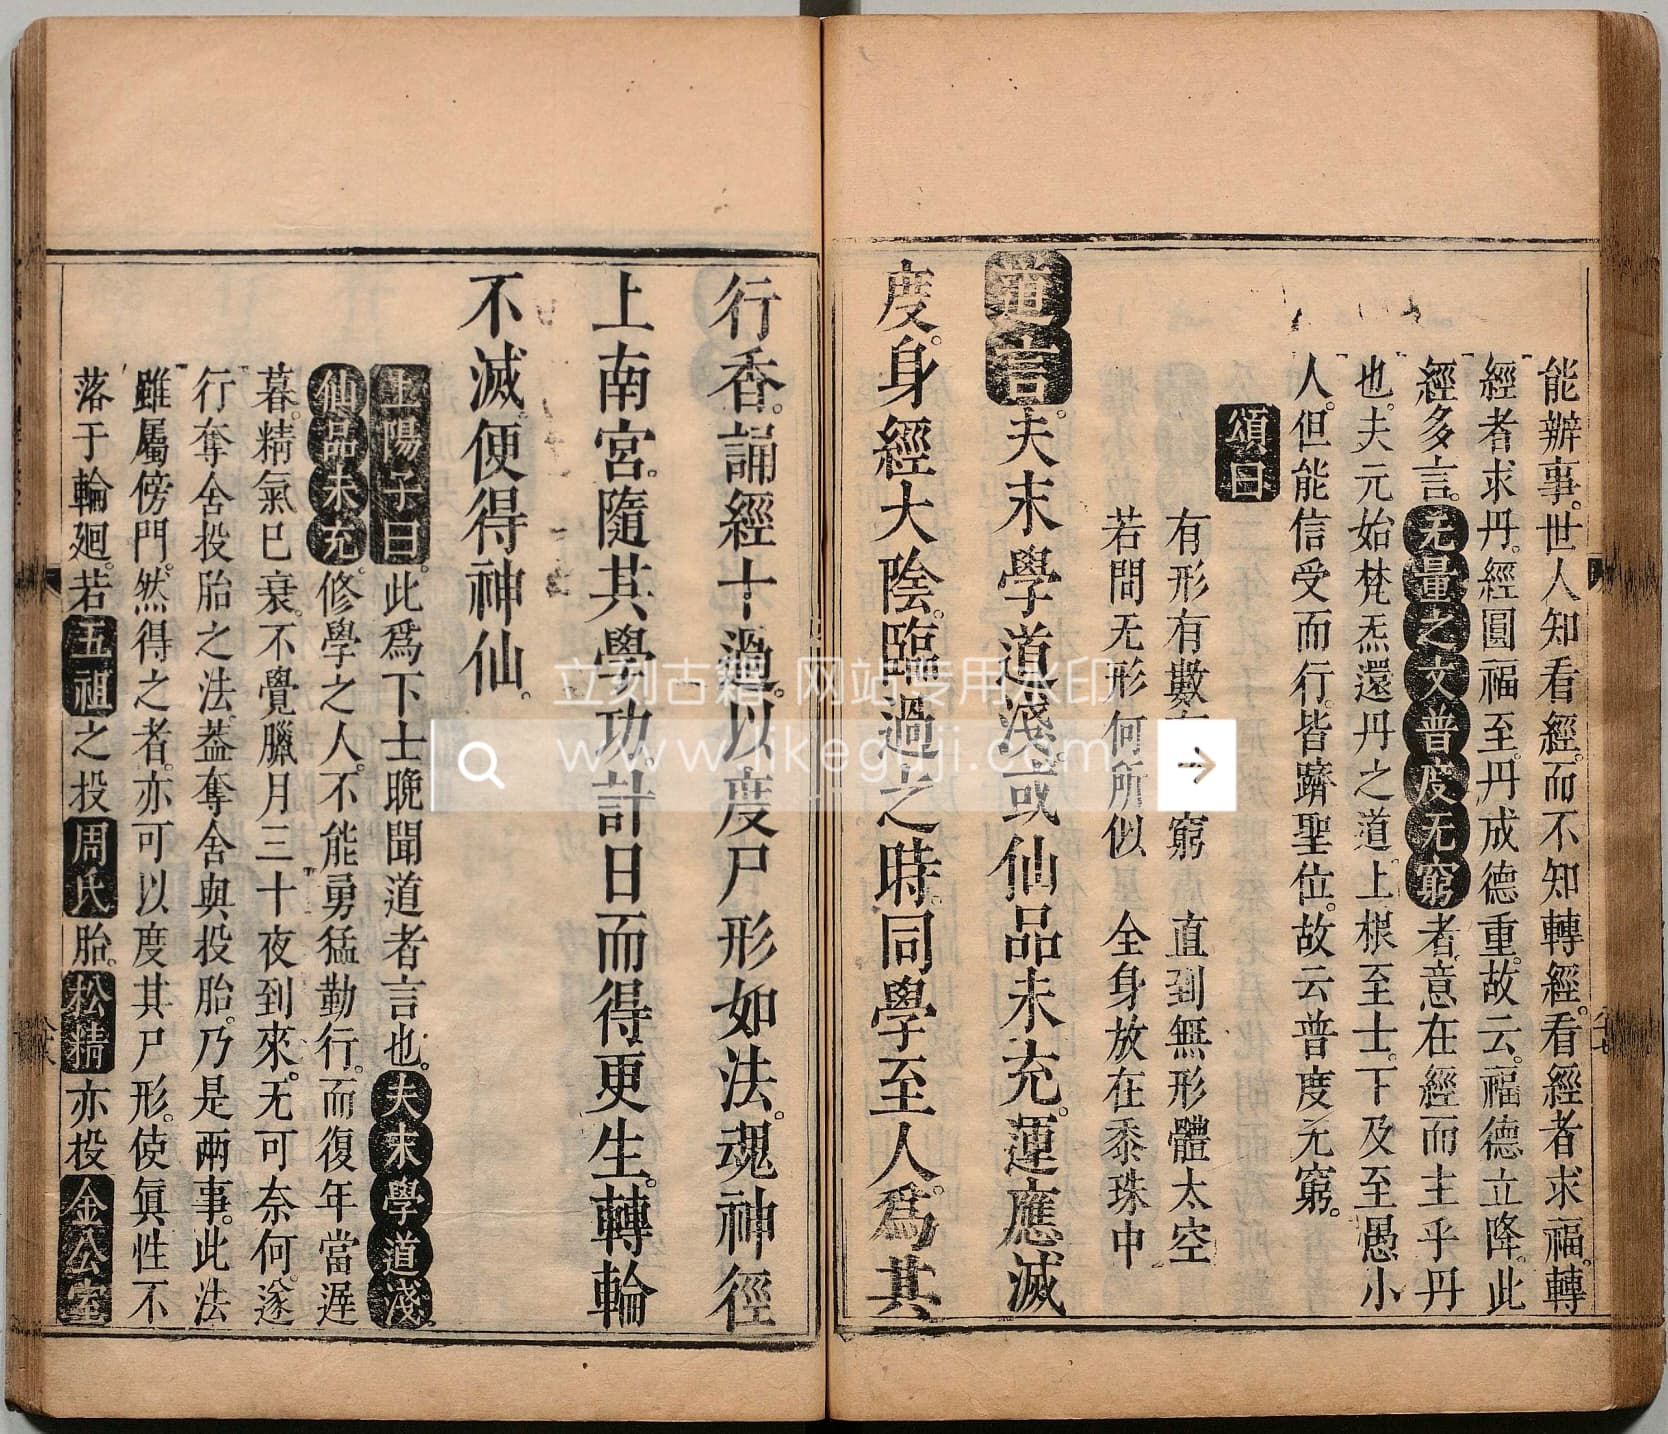 能辦事。世人知看經。而不知轉經。看經者求福。轉
經者求丹。經圓福至。丹成德重。故云。福德立降。此
經多言。无量之文普度无窮者。意在經而主乎丹
也。夫元始梵炁還丹之道。上根至士。下及至愚小
人。但能信受而行。皆躋聖位。故云普度无窮。
頌曰
有形有數 窮 直到無形體太空
若問无形何所似 全身放在黍珠中
道言。夫末學道淺。或仙品未充。運應滅
度。身經大陰。臨過之時。同學至人。為其
行香。誦經十過。以度尸形如法。魂神徑
上南宮。隨其學功。計日而得更生。轉輪
不滅。便得神仙。
上陽子曰。此為下士晚聞道者言也。夫末學道淺。
仙品未充。修學之人。不能勇猛勤行。而復年當遲
暮。精氣已衰。不覺臘月三十夜到來。无可奈何。遂
行奪舍投胎之法。蓋奪舍與投胎。乃是兩事。此法
雖屬傍門。然得之者。亦可以度其尸形。使眞性不
落于輪廻。若五祖之投周氏胎。松精亦投金公室
六十七
立刻古籍 网站专用水印
www.likeguji.com